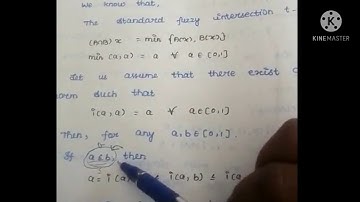 we know that,
The standard fuzzy intersection t-
(A∩B)x = min {A(x), B(x)}
min (a,a) = a ∀ a∈[0,1]
Let us assume that there exist
norm such that
i(a,a) = a ∀ a∈[0,1]
Then, for any a,b∈[0,1].
If a≤b, then
a = i(a, ≤ i(a,b) ≤ i(a
MADE WITH
KINEMASTER